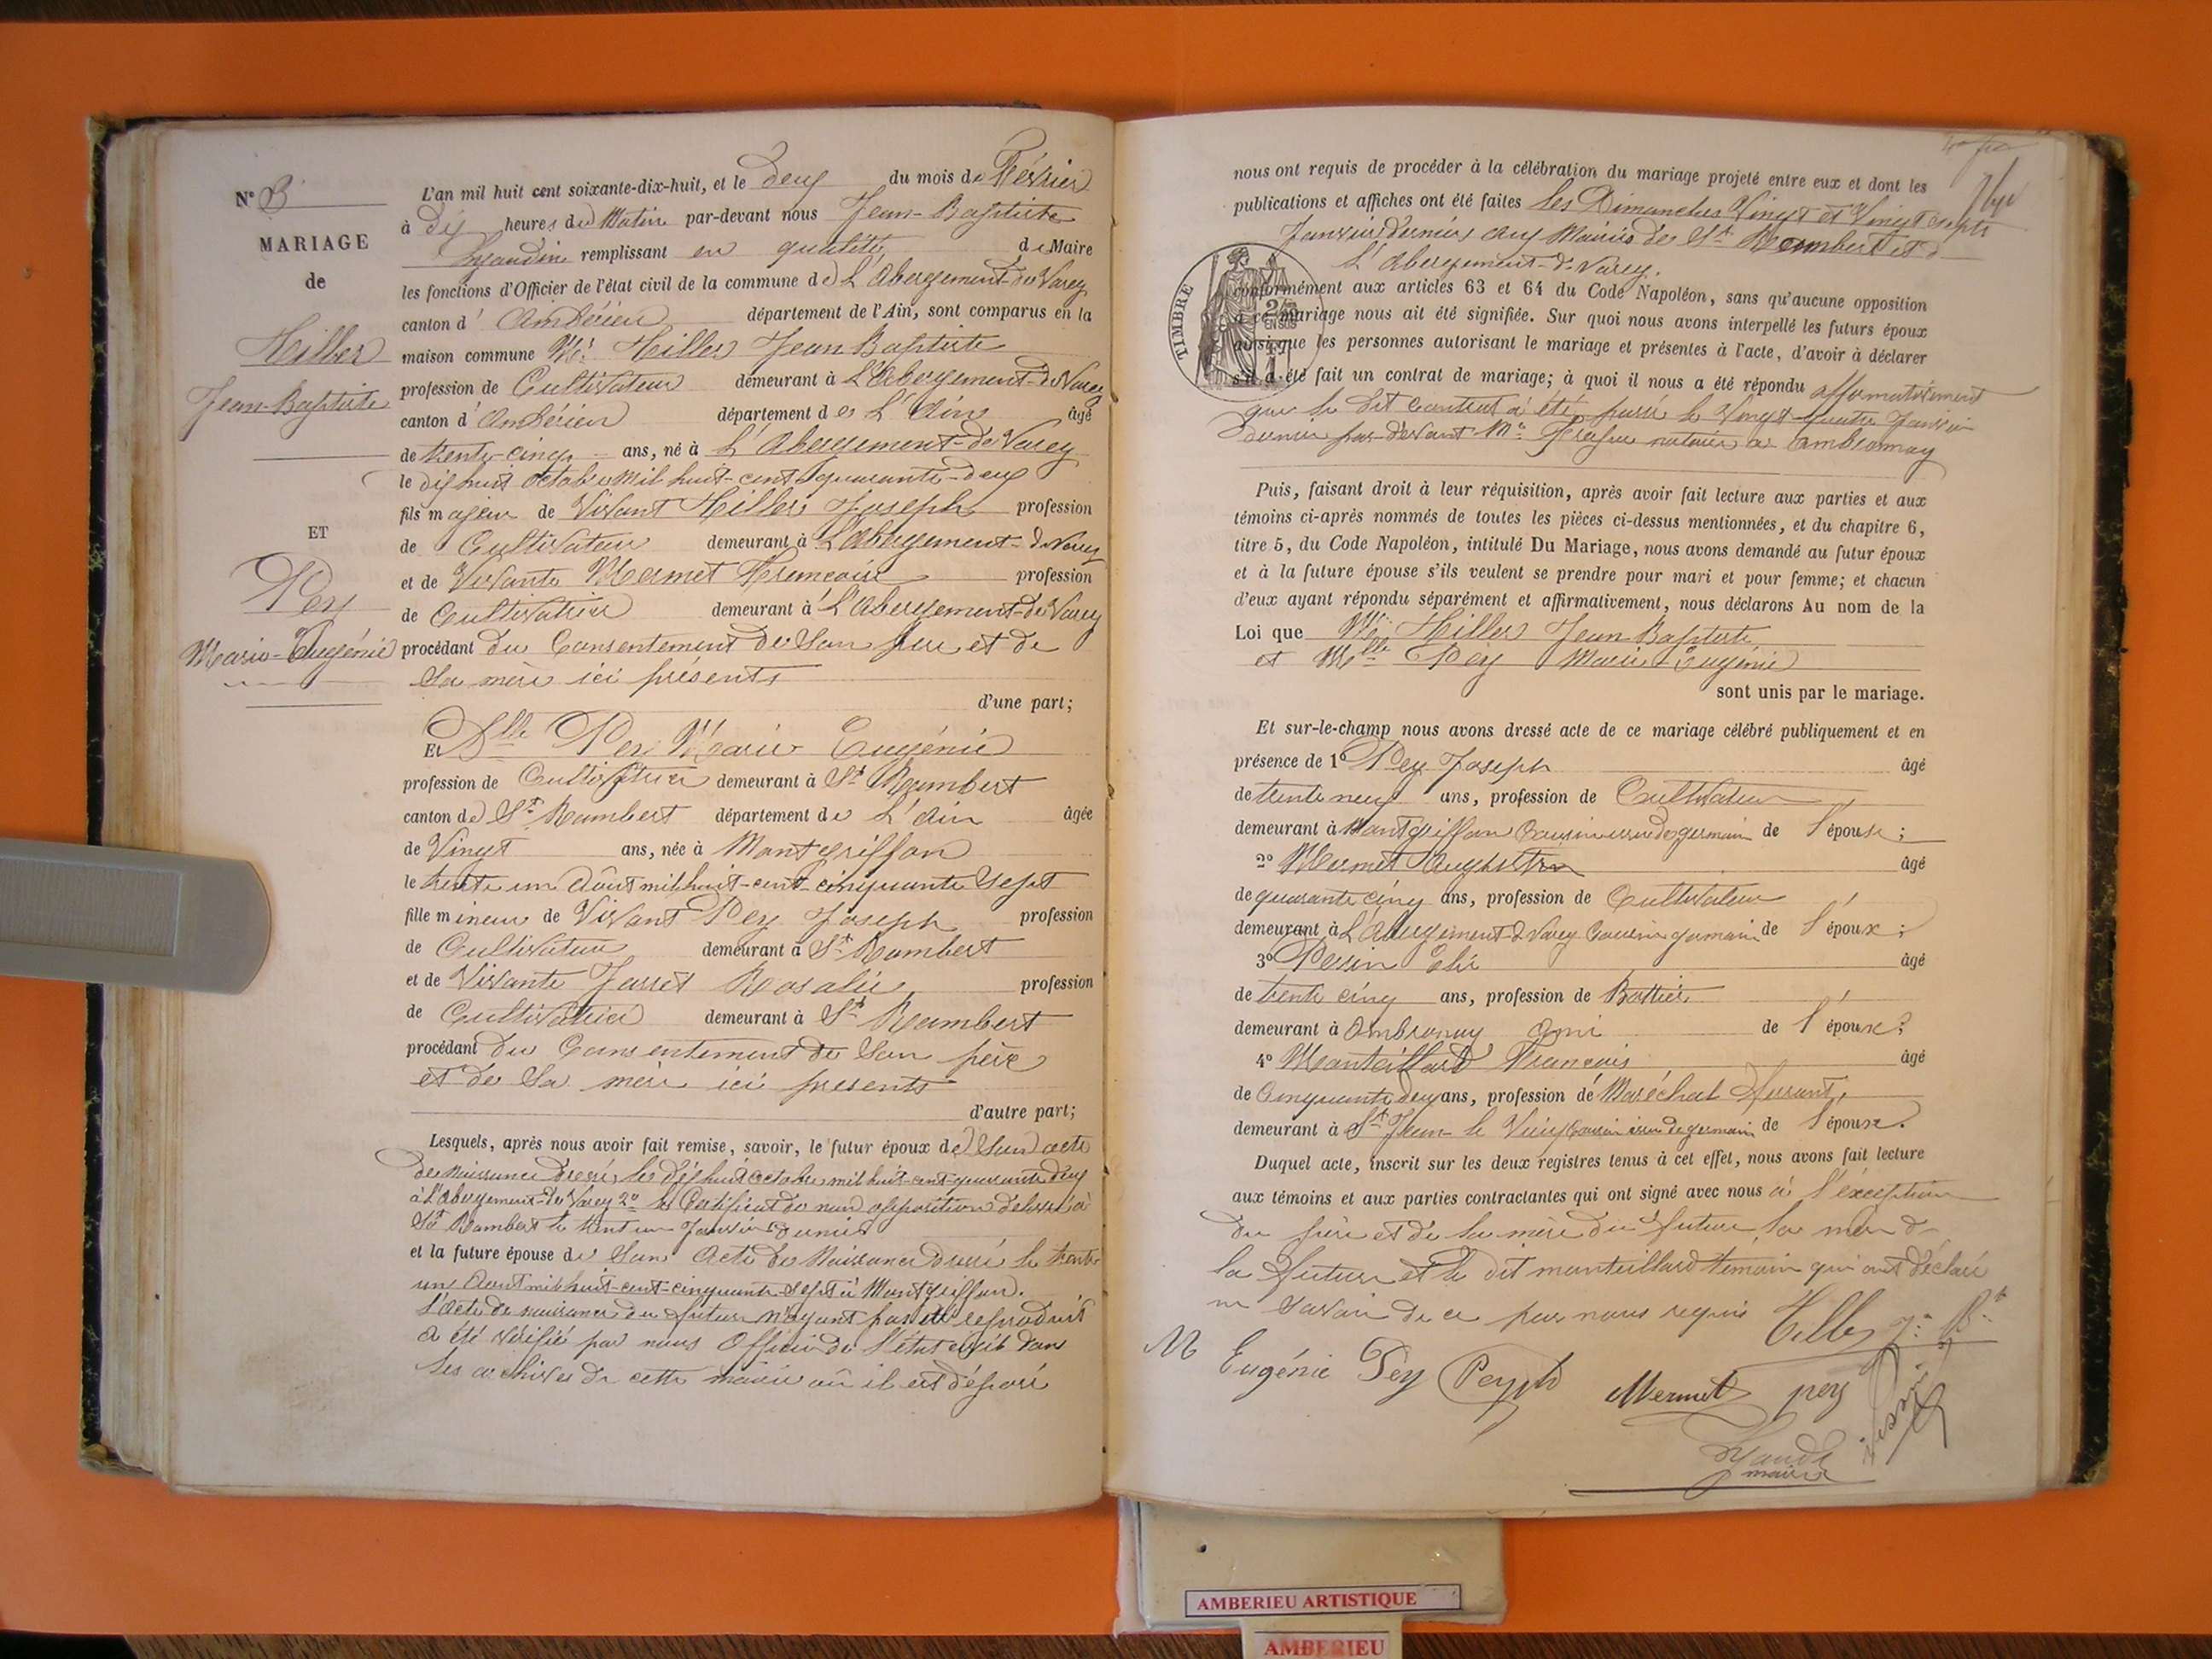 N° 3
MARIAGE
de
Hiller
Jean-Baptiste
ET
Pey
Marie-Eugénie
L'an mil huit cent soixante-dix-huit, et le deux du mois de Février
à dix heures du Matin par-devant nous Jean-Baptiste
remplissant en qualité de Maire
les fonctions d'Officier de l'état civil de la commune de L'Abergement-de-Varey
canton d' Ambérieu département de l'Ain, sont comparus en la
maison commune Mr Hiller Jean Baptiste
profession de Cultivateur demeurant à L'Abergement-de-Varey
canton d' Ambérieu département de L'Ain âgé
de trente-cinq ans, né à L'Abergement-de-Varey
le dix huit octobre mil huit-cent quarante-deux
fils majeur de Vivant Hiller Joseph profession
de Cultivateur demeurant à L'Abergement-d-Varey
et de Vivante Mermet Françoise profession
de Cultivatrice demeurant à L'Abergement-de-Varey
procédant du Consentement de Son père et de
Sa mère ici présents
d'une part;
Et Dlle Pey Marie Eugénie
profession de Cultivatrice demeurant à St Rambert
canton de St Rambert département de L'Ain âgée
de Vingt ans, née à Montgriffon
le trente un Août mil huit-cent-cinquante Sept
fille mineure de Vivant Pey Joseph profession
de Cultivateur demeurant à St Rambert
et de Vivante Jarret Rosalie profession
de Cultivatrice demeurant à St Rambert
procédant du Consentement de Son père
et de Sa mère ici présents
d'autre part;
Lesquels, après nous avoir fait remise, savoir, le futur époux de Son acte
de Naissance dressé le dix huit octobre mil huit-cent-quarante deux
à L'Abergement-de-Varey 2° le Certificat de non opposition délivré à
St Rambert le trente un Janvier dernier
et la future épouse de Son Acte de Naissance dressé le trente
un Août mil huit-cent-cinquante-Sept à Montgriffon.
L'acte de naissance du futur n'ayant pas été reproduit
a été vérifié par nous Officier de l'état civil dans
les archives de cette mairie où il est déposé
nous ont requis de procéder à la célébration du mariage projeté entre eux et dont les
publications et affiches ont été faites les Dimanches Vingt et Vingt sept
Janvier dernier aux Mairies de St Rambert et d
L'Abergement-d-Varey.
TIMBRE
2/5
EN SUS
conformément aux articles 63 et 64 du Code Napoléon, sans qu'aucune opposition
à ce mariage nous ait été signifiée. Sur quoi nous avons interpellé les futurs époux
ainsi que les personnes autorisant le mariage et présentes à l'acte, d'avoir à déclarer
s'il a été fait un contrat de mariage; à quoi il nous a été répondu affirmativement
que le dit contrat a été passé le Vingt-quatre Janvier
dernier par-devant Me notaire à Ambronnay
Puis, faisant droit à leur réquisition, après avoir fait lecture aux parties et aux
témoins ci-après nommés de toutes les pièces ci-dessus mentionnées, et du chapitre 6,
titre 5, du Code Napoléon, intitulé Du Mariage, nous avons demandé au futur époux
et à la future épouse s'ils veulent se prendre pour mari et pour femme; et chacun
d'eux ayant répondu séparément et affirmativement, nous déclarons Au nom de la
Loi que Mr Hiller Jean Baptiste
et Mlle Pey Marie Eugénie
sont unis par le mariage.
Et sur-le-champ nous avons dressé acte de ce mariage célébré publiquement et en
présence de 1° Pey Joseph âgé
de trente neuf ans, profession de Cultivateur
demeurant à Montgriffon Cousin issu de germain de l'épouse;
2° Mermet Augustin âgé
de quarante cinq ans, profession de Cultivateur
demeurant à L'Abergement-d-Varey Cousin germain de l'époux;
3° Perrin Elie âgé
de trente cinq ans, profession de Bottier
demeurant à Ambronay Ami de l'époux;
4° Monteillard François âgé
de Cinquante deux ans, profession de Maréchal ferrant,
demeurant à St Jean le Vieux Cousin issu de germain de l'époux.
Duquel acte, inscrit sur les deux registres tenus à cet effet, nous avons fait lecture
aux témoins et aux parties contractantes qui ont signé avec nous à l'exception
du père et de la mère du futur, la mère d
la future et le dit monteillard témoin qui ont déclaré
ne savoir de ce par nous requis Hiller Jn Bte
M Eugénie Pey Pey Jh Mermet pey
maire
AMBERIEU ARTISTIQUE
AMBERIEU